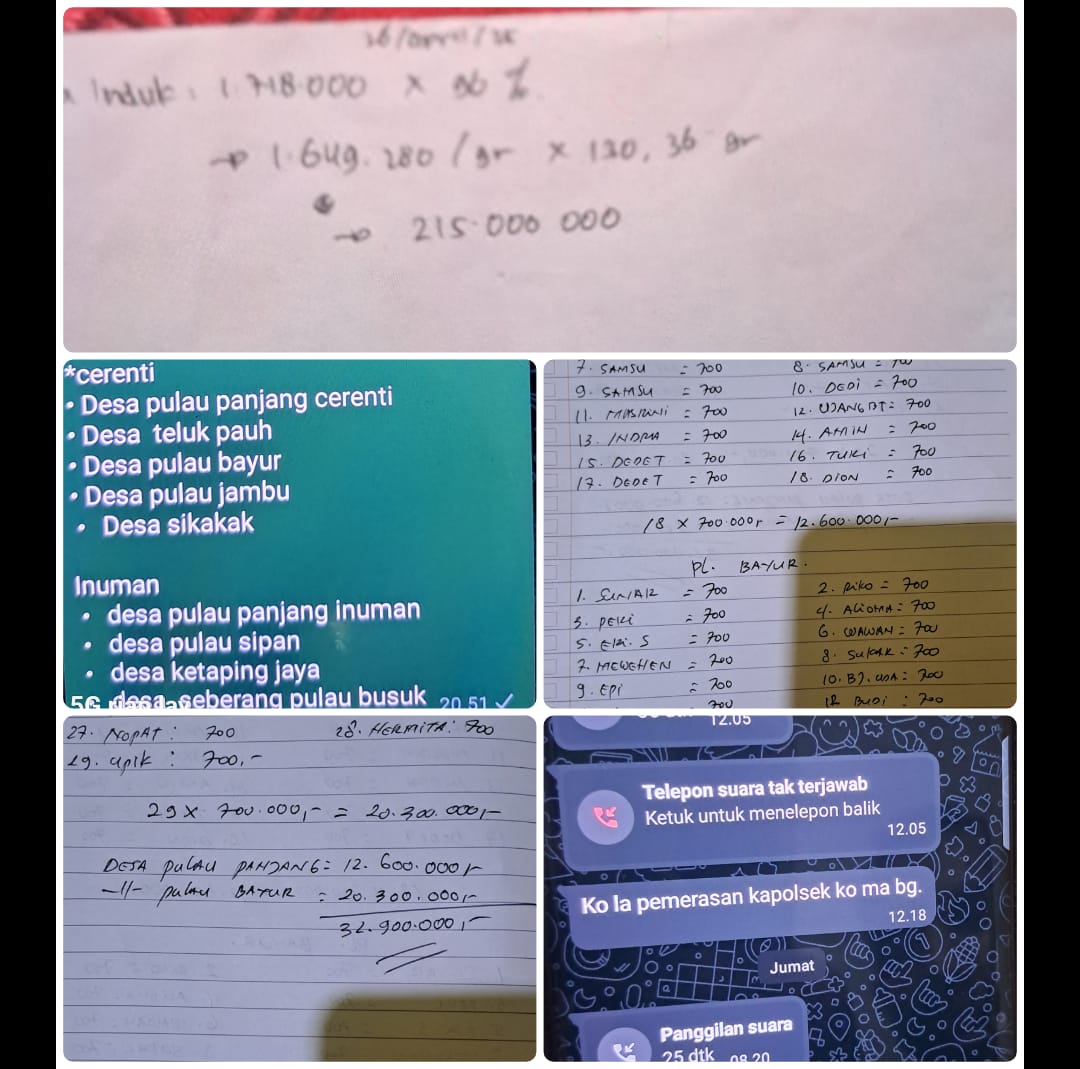 26/april/25
Induk : 1.718.000 x 96 %
→ 1.649.280 / gr x 130,36 gr
→ 215.000 000
*cerenti
• Desa pulau panjang cerenti
• Desa teluk pauh
• Desa pulau bayur
• Desa pulau jambu
• Desa sikakak
Inuman
• desa pulau panjang inuman
• desa pulau sipan
• desa ketaping jaya
desa seberang pulau busuk 20.51 ✓
7. SAMSU = 700 8. SAMSU = 700
9. SAMSU = 700 10. DEDI = 700
11. = 700 12. UJANG DT = 700
13. INDRA = 700 14. AMIN = 700
15. DEDET = 700 16. TUKI = 700
17. DEDET = 700 18. DION = 700
18 x 700.000,- = 12.600.000,-
PL. BAYUR.
1. = 700 2. Riko = 700
3. PEKI = 700 4. = 700
5. EKI. S = 700 6. WAWAN = 700
7. = 700 8. = 700
9. EPI = 700 10. = 700
700 12 BUDI : 700
27. NOPAT : 700 28. HERMITA : 700
29. UPIK : 700,-
29 x 700.000,- = 20.300.000,-
DESA PULAU PANJANG = 12.600.000,-
-//- pulau BAYUR = 20.300.000,-
32.900.000,-
12.05
Telepon suara tak terjawab
Ketuk untuk menelepon balik
12.05
Ko la pemerasan kapolsek ko ma bg.
12.18
Jumat
Panggilan suara
25 dtk 08.20